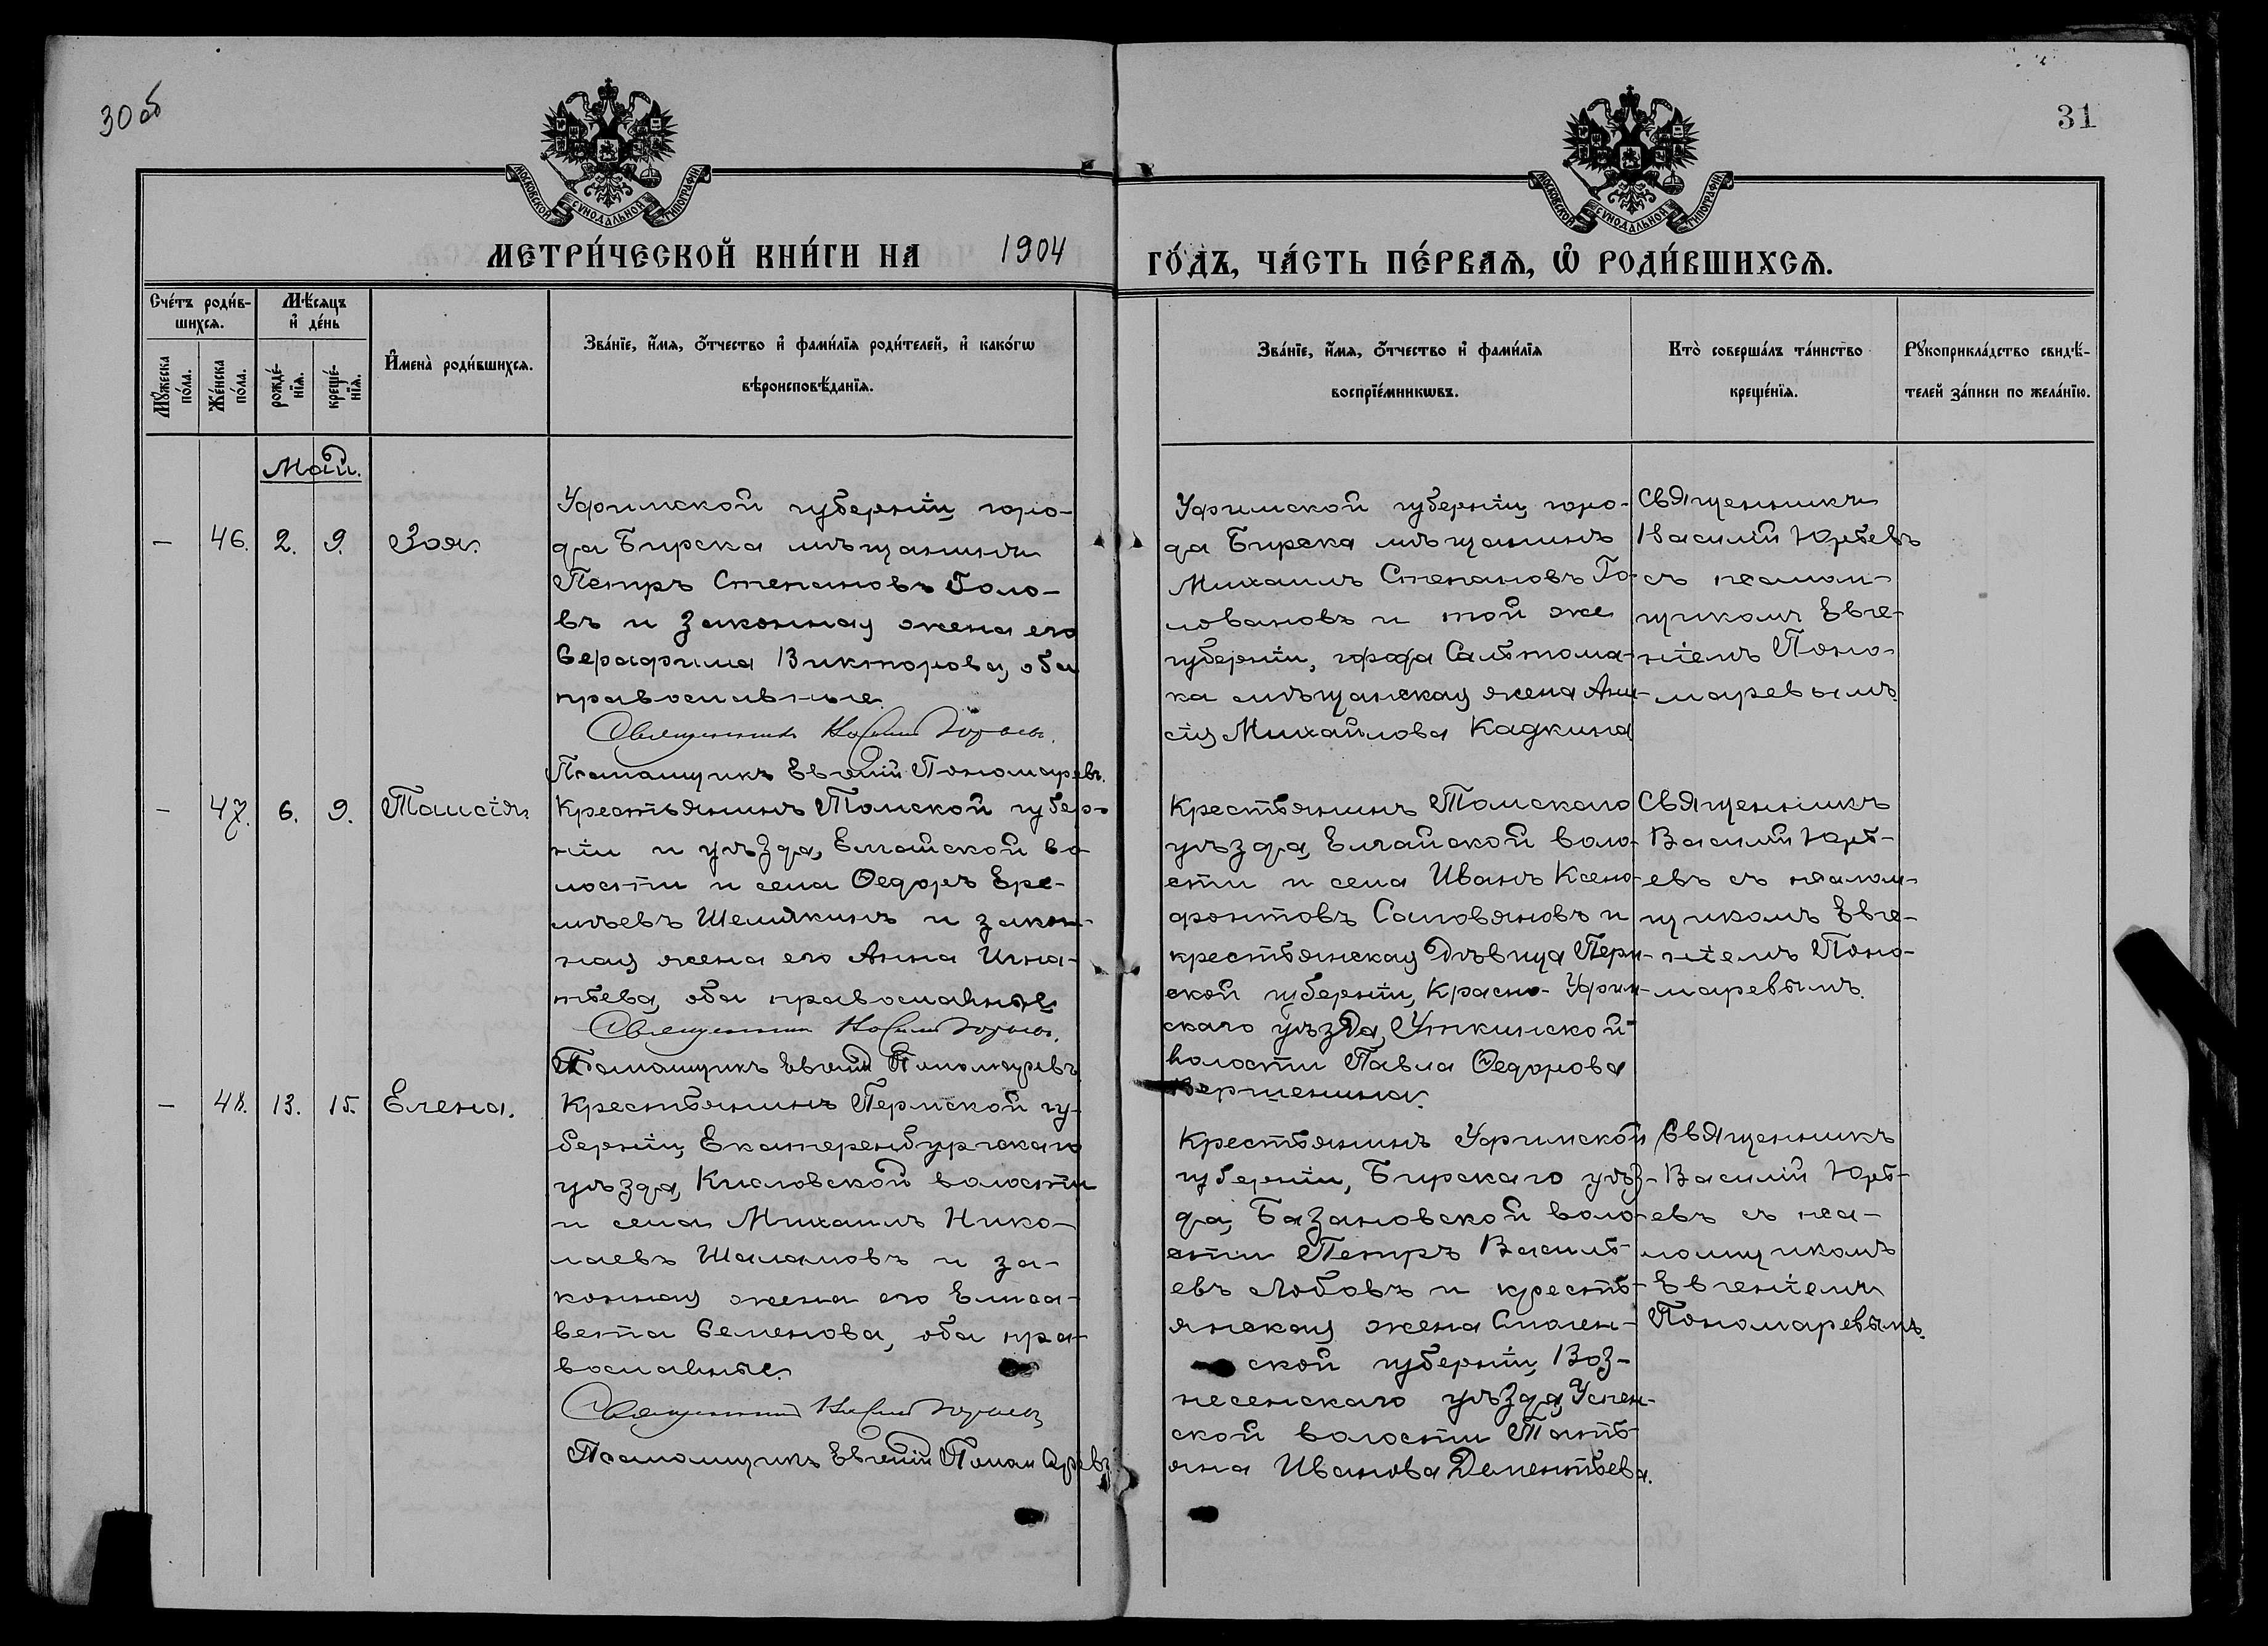 30 об
31
МОСКОВСКОЙ СѴНОДАЛЬНОЙ ТИПОГРАФІИ
МОСКОВСКОЙ СѴНОДАЛЬНОЙ ТИПОГРАФІИ
МЕТРИ́ЧЕСКОЙ КНИ́ГИ НА 1904 ГО́ДЪ, ЧА́СТЬ ПЕ́РВАѦ, Ѡ҆ РОДИ́ВШИХСѦ.
Сче́тъ роди́в-
шихсѧ.
Мꙋ́жеска
по́ла.
Же́нска
по́ла.
Мѣ́сѧцъ
и҆ де́нь
рожде́-
нїѧ.
креще́-
нїѧ.
И҆мена̀ роди́вшихсѧ.
Зва́нїе, и҆́мѧ, ѻ҆́тчество и҆ фами́лїѧ роди́телей, и҆ како́гѡ
вѣроисповѣ́данїѧ.
Зва́нїе, и҆́мѧ, ѻ҆́тчество и҆ фами́лїѧ
воспрїе́мникѡвъ.
Кто̀ соверша́лъ та́инство
креще́нїѧ.
Рꙋкоприкла́дство свидѣ́-
телей за́писи по жела́нїю.
Май.
— 46. 2. 9. Зоя.
Уфимской губерніи, горо-
да Бирска мѣщанинъ
Петръ Степановъ Голо-
въ и законная жена его
Серафима Викторова, оба
православные.
Священникъ Василій Юрьевъ.
Псаломщикъ Евгеній Пономаревъ.
Уфимской губерніи, горо-
да Бирска мѣщанинъ
Михаилъ Степановъ Го-
ловановъ и той же
губерніи, города
ка мѣщанская жена Ани-
сія Михайлова Кадкина
Священникъ
Василій Юрьевъ
съ псалом-
щикомъ Евге-
ніемъ Поно-
маревымъ.
— 47. 6. 9. Таисія.
Крестьянинъ Томской губер-
ніи и уѣзда, Елгайской во-
лости и села Ѳедоръ Ере-
мѣевъ Шелякинъ и закон-
ная жена его Анна Игна-
тьева, оба православные
Священникъ Василій Юрьевъ.
Псаломщикъ Евгеній Пономаревъ
Крестьянинъ Томскаго
уѣзда, Елгайской воло-
сти и села Иванъ Ксено-
фонтовъ Саловяновъ и
крестьянская дѣвица Перм-
ской губерніи, Красно-Уфим-
скаго уѣзда, Уткинской
волости Павла Ѳедорова
Вершинина.
Священникъ
Василій Юрь-
евъ съ псалом-
щикомъ Евге-
ніемъ Поно-
маревымъ.
— 48. 13. 15. Елена.
Крестьянинъ Пермской гу-
берніи, Екатеренбургскаго
уѣзда, Кисловской волости
и села Михаилъ Нико-
лаевъ Шаламовъ и за-
конная жена его Елиса-
вета Семенова, оба пра-
вославные.
Священникъ Василій Юрьевъ
Псаломщикъ Евгеній Пономаревъ
Крестьянинъ Уфимской
губерніи, Бирскаго уѣз-
да, Базановской воло-
сти Петръ Василь-
евъ Лобовъ и кресть-
янская жена Смолен-
ской губерніи, Воз-
несенскаго уѣзда, Успен-
ской волости Тать-
яна Иванова Дементьева.
Священникъ
Василій Юрь-
евъ съ пса-
ломщикомъ
Евгеніемъ
Пономаревымъ.